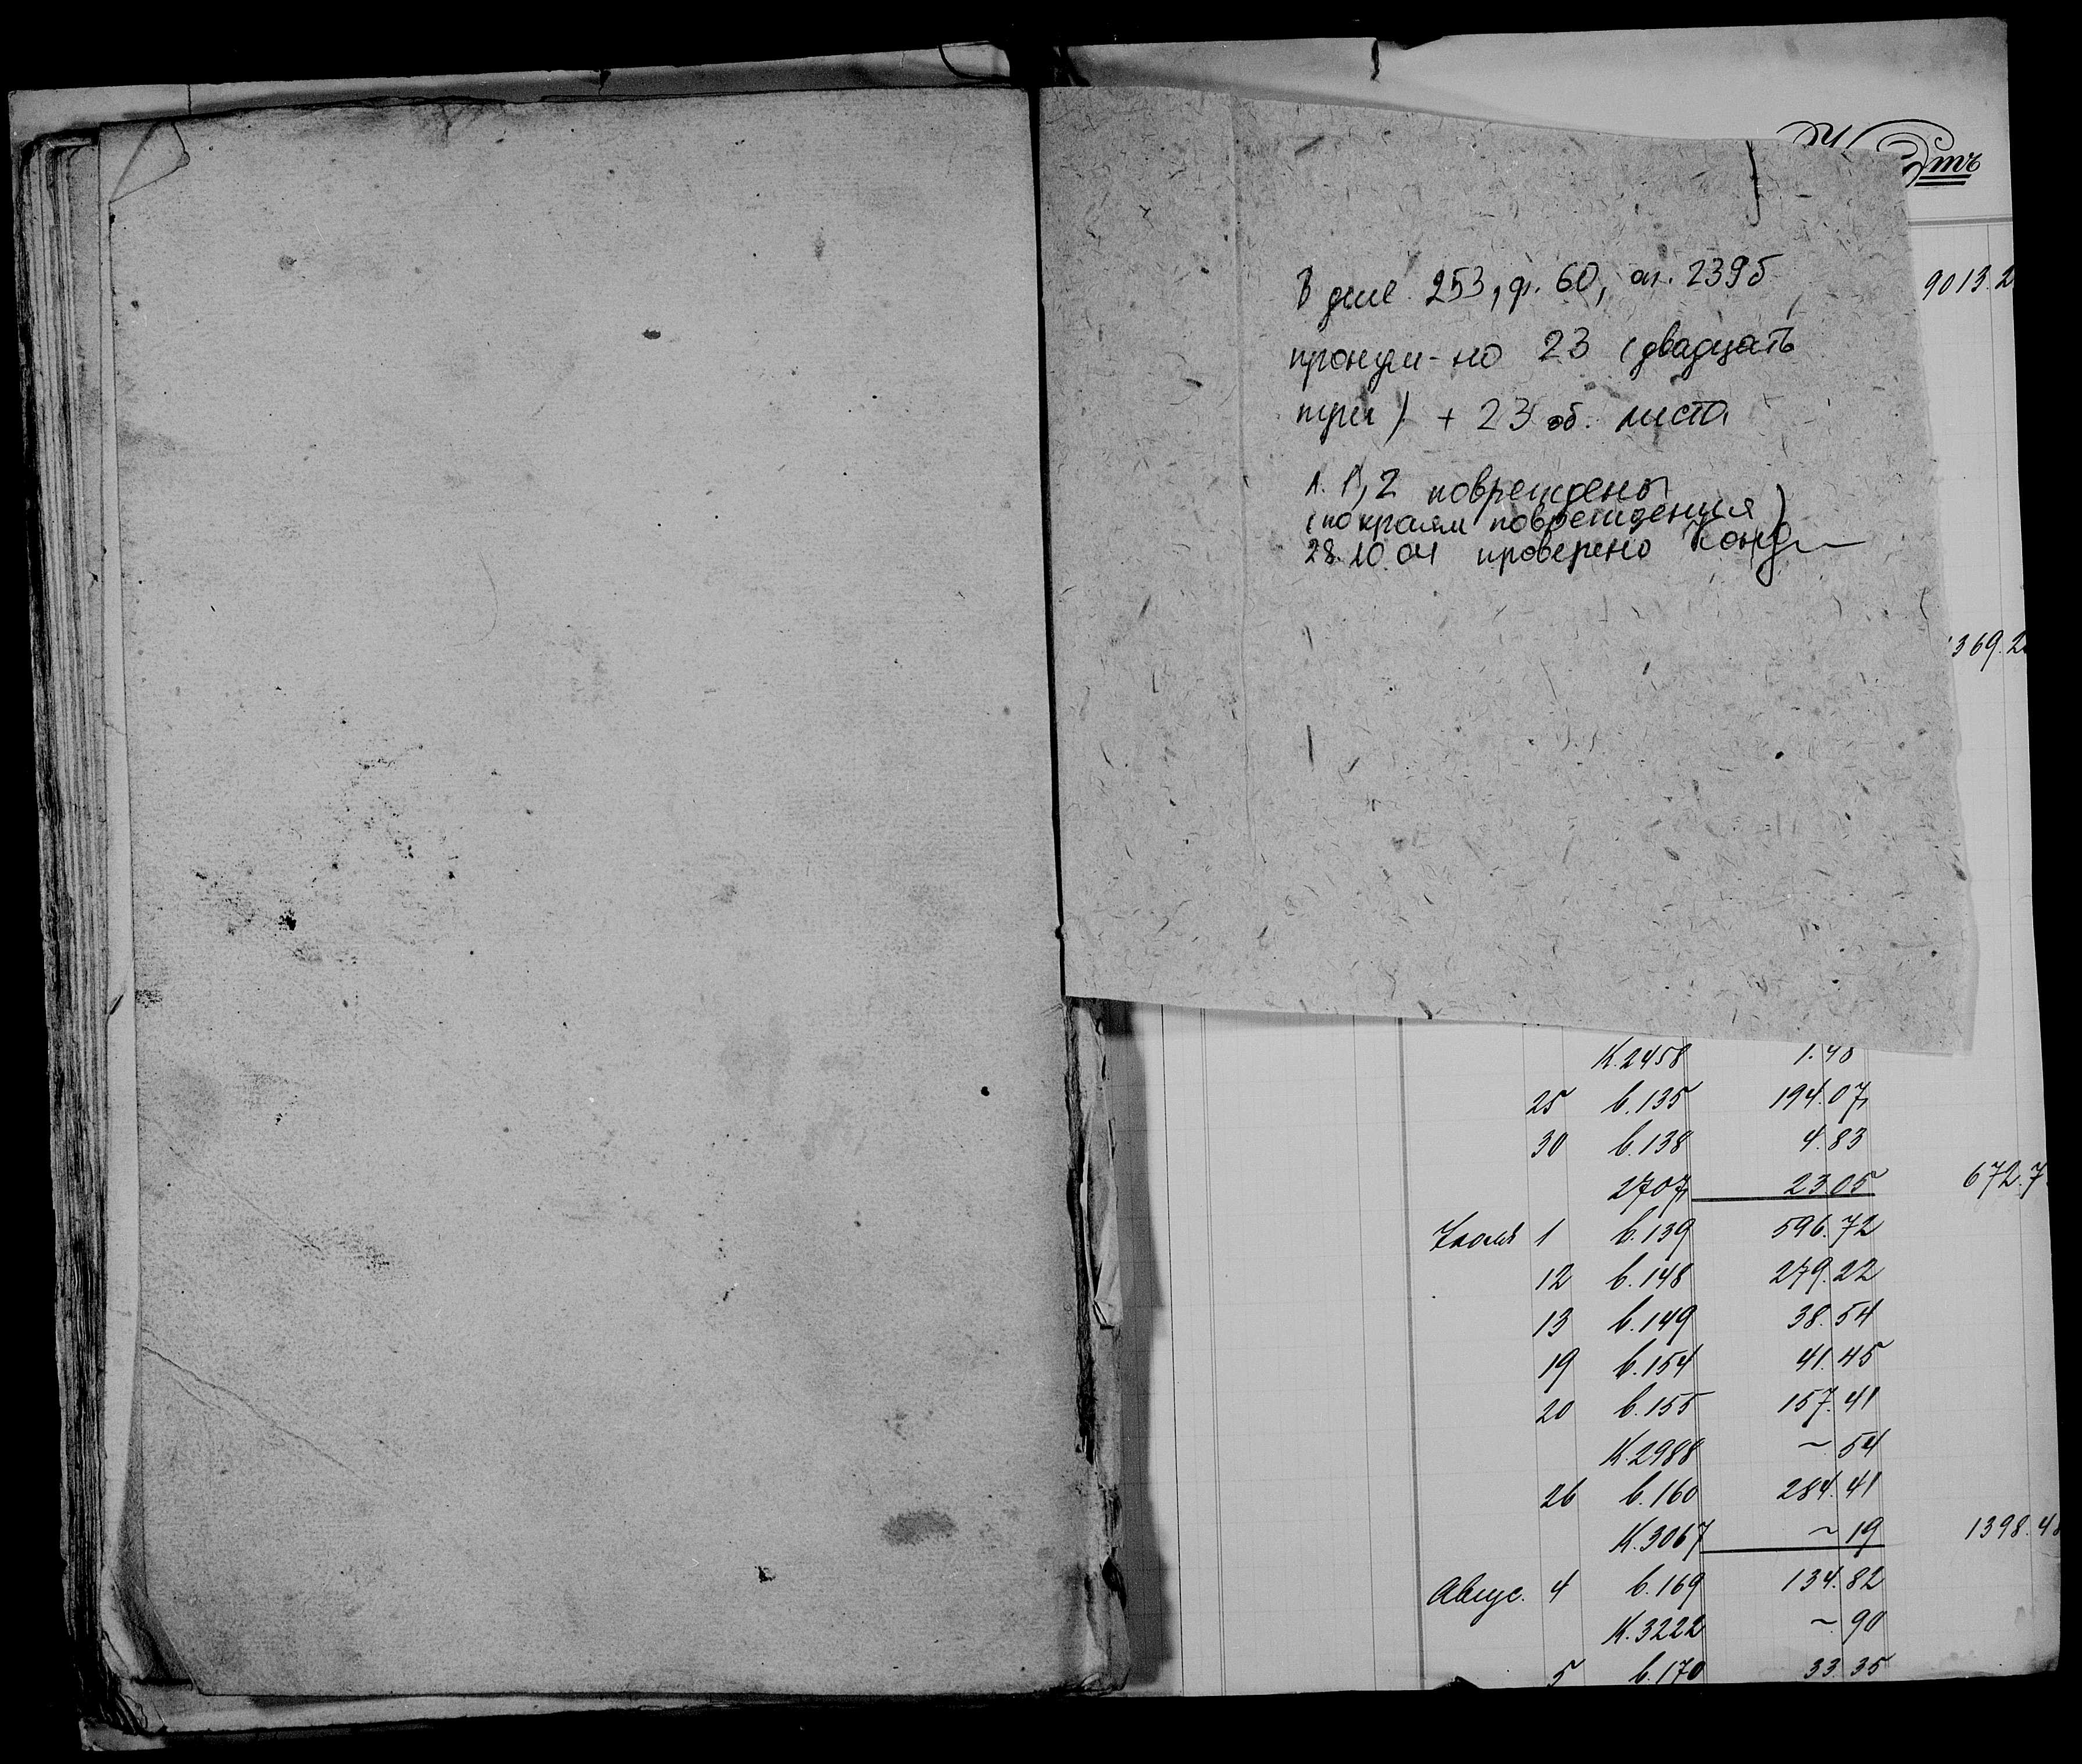 В деле 253, ф. 60, оп. 239б
пронум-но 23 (двадцать
три) + 23 об. листа
л. 1, 2 повреждены
(по краям повреждения)
28.10.04 проверено
9013.2
369.2
К.2458 1.48
25 б.135 194.07
30 б.138 4.83
2707 23.05 672.7
Июля 1 б.139 596.72
12 б.148 279.22
13 б.149 38.54
19 б.154 41.45
20 б.155 157.41
К.2988 ~ 54
26 б.160 284.41
К.3067 ~ 19 1398.48
Авгус. 4 б.169 134.82
К.3222 ~ 90
5 б.170 33.35